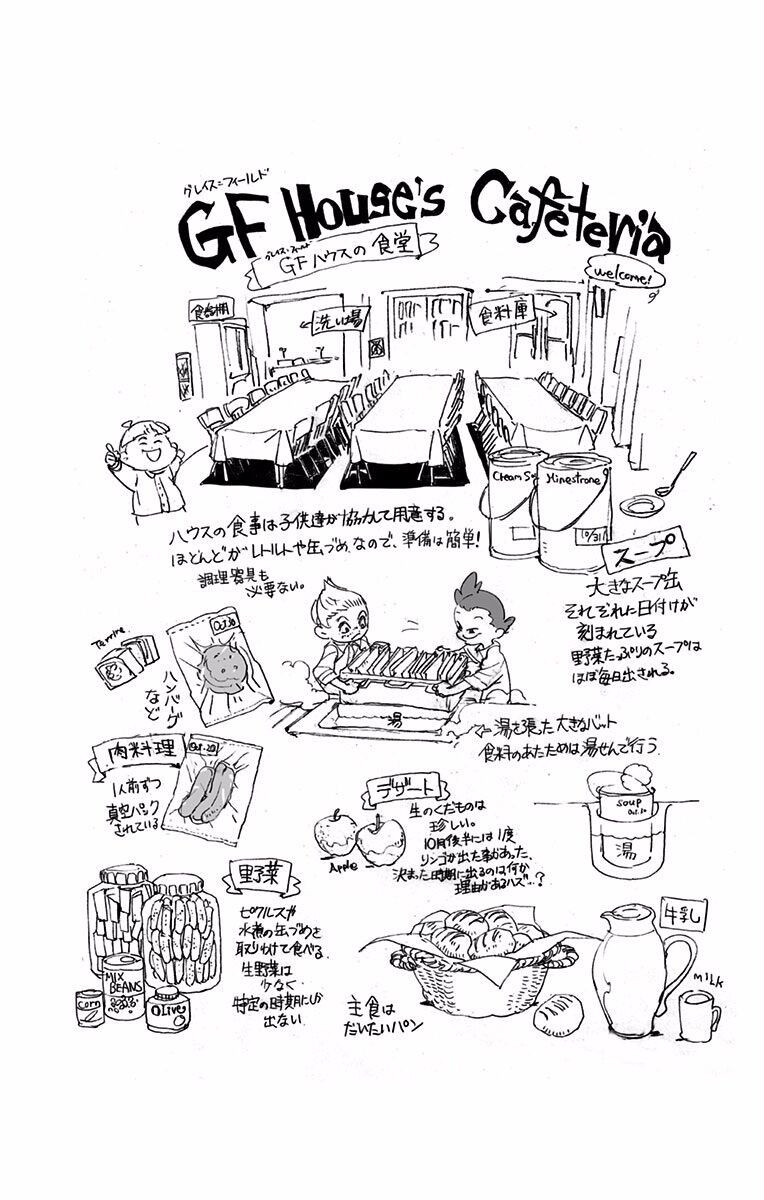 グレイス=フィールド
GF House's Cafeteria
グレイス=フィールド
GFハウスの食堂
welcome!
食器棚
←洗い場
食料庫
Cream S
Minestrone
10/31
ハウスの食事は子供達が協力して用意する。
ほとんどがレトルトや缶づめなので、準備は簡単!
調理器具も
必要ない。
スープ
大きなスープ缶
それぞれに日付けが
刻まれている
野菜たっぷりのスープは
ほぼ毎日出される。
Terrine
Oct.30
ハンバーグ
など
湯
←湯を張った大きなバット
食料のあたためは湯せんで行う
肉料理
Oct.20
1人前ずつ
真空パック
されている
デザート
生のくだものは
珍しい。
10月後半には1度
リンゴが出た事があった、
決まった時期に出るのは何か
理由があるハズ…?
Apple
soup
Oct.30
湯
野菜
ピクルスや
水煮の缶づめを
取りわけて食べる
生野菜は
少なく
特定の時期にしか
出ない
MIX
BEANS
Corn
Olive
主食は
だいたいパン
牛乳
MILK